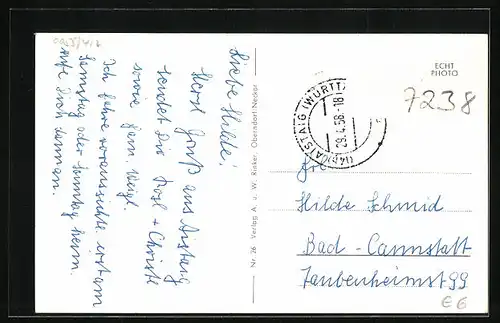 Liebe Hilde!
Herzl. Grüß aus Aistaig
sendet Dir Rosl + Christe
sowie Fam. Weigl.
Ich fahre voraussichtl. erst am
Samstag oder Sonntag heim.
Dich
Nr. 26 Verlag A. u. W. Risker, Obendorf/Neckar
ECHT
PHOTO
7238
(14b) AISTAIG (WÜRTT)
29.4.58-18
Frl.
Hilde Schmid
Bad-Cannstatt
Taubenheimst 99
€6